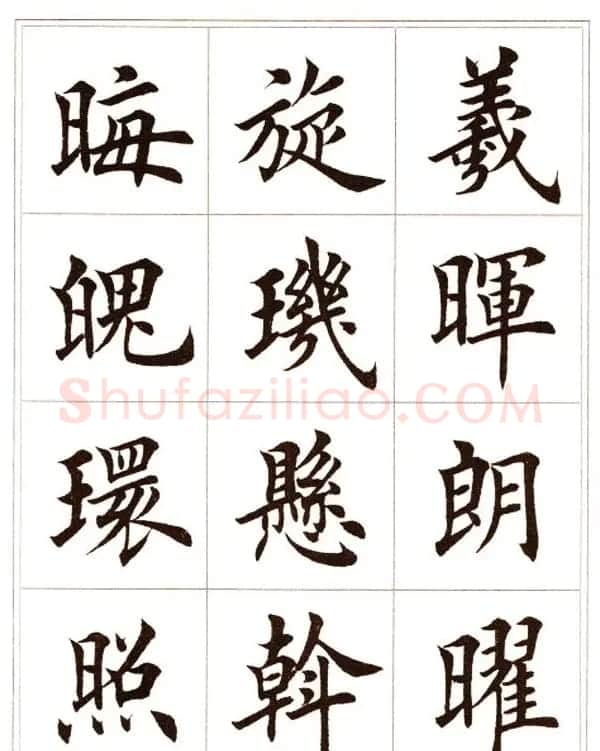 羲暉朗曜
旋璣懸斡
晦魄環照
Shufaziliao.COM